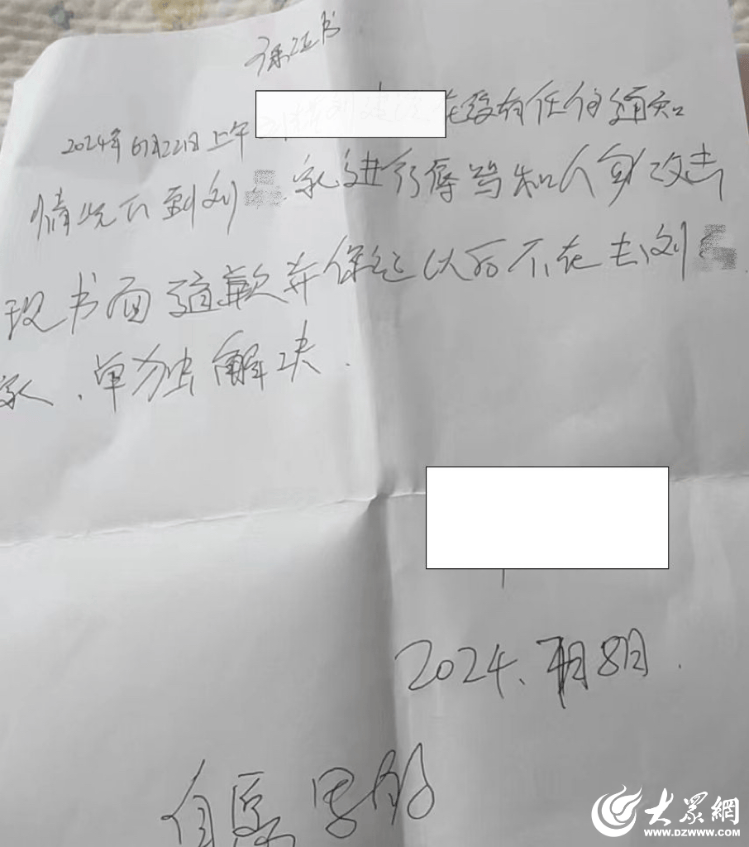 保证书
2024年6月22日上午 在没有任何通知
情况下到刘 家进行辱骂和人身攻击
现书面道歉并保证以后不在去刘
家.单独解决.
2024.7月8日.
自愿
大眾網
WWW.DZWWW.COM